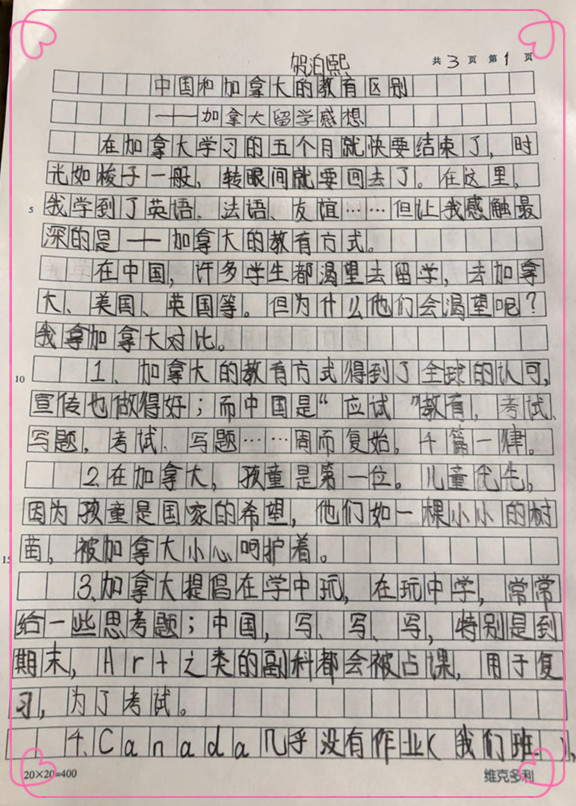 贺泊熙
共 3 页 第 1 页
中国和加拿大的教育区别
——加拿大留学感想
在加拿大学习的五个月就快要结束了，时
光如梭子一般，转眼间就要回去了。在这里，
5 我学到了英语、法语、友谊……但让我感触最
深的是——加拿大的教育方式。
在中国，许多学生都渴望去留学，去加拿
大、美国、英国等。但为什么他们会渴望呢？
我拿加拿大对比。
10 1、加拿大的教育方式得到了全球的认可，
宣传也做得好；而中国是“应试”教育，考试、
写题，考试、写题……周而复始，千篇一律。
2.在加拿大，孩童是第一位。儿童优先，
因为孩童是国家的希望，他们如一棵小小的树
15 苗，被加拿大小心呵护着。
3.加拿大提倡在学中玩，在玩中学，常常
给一些思考题；中国，写、写、写，特别是到
期末，Art之类的副科都会被占课，用于复
习，为了考试。
4、Canada几乎没有作业（我们班），
20×20=400
维克多利